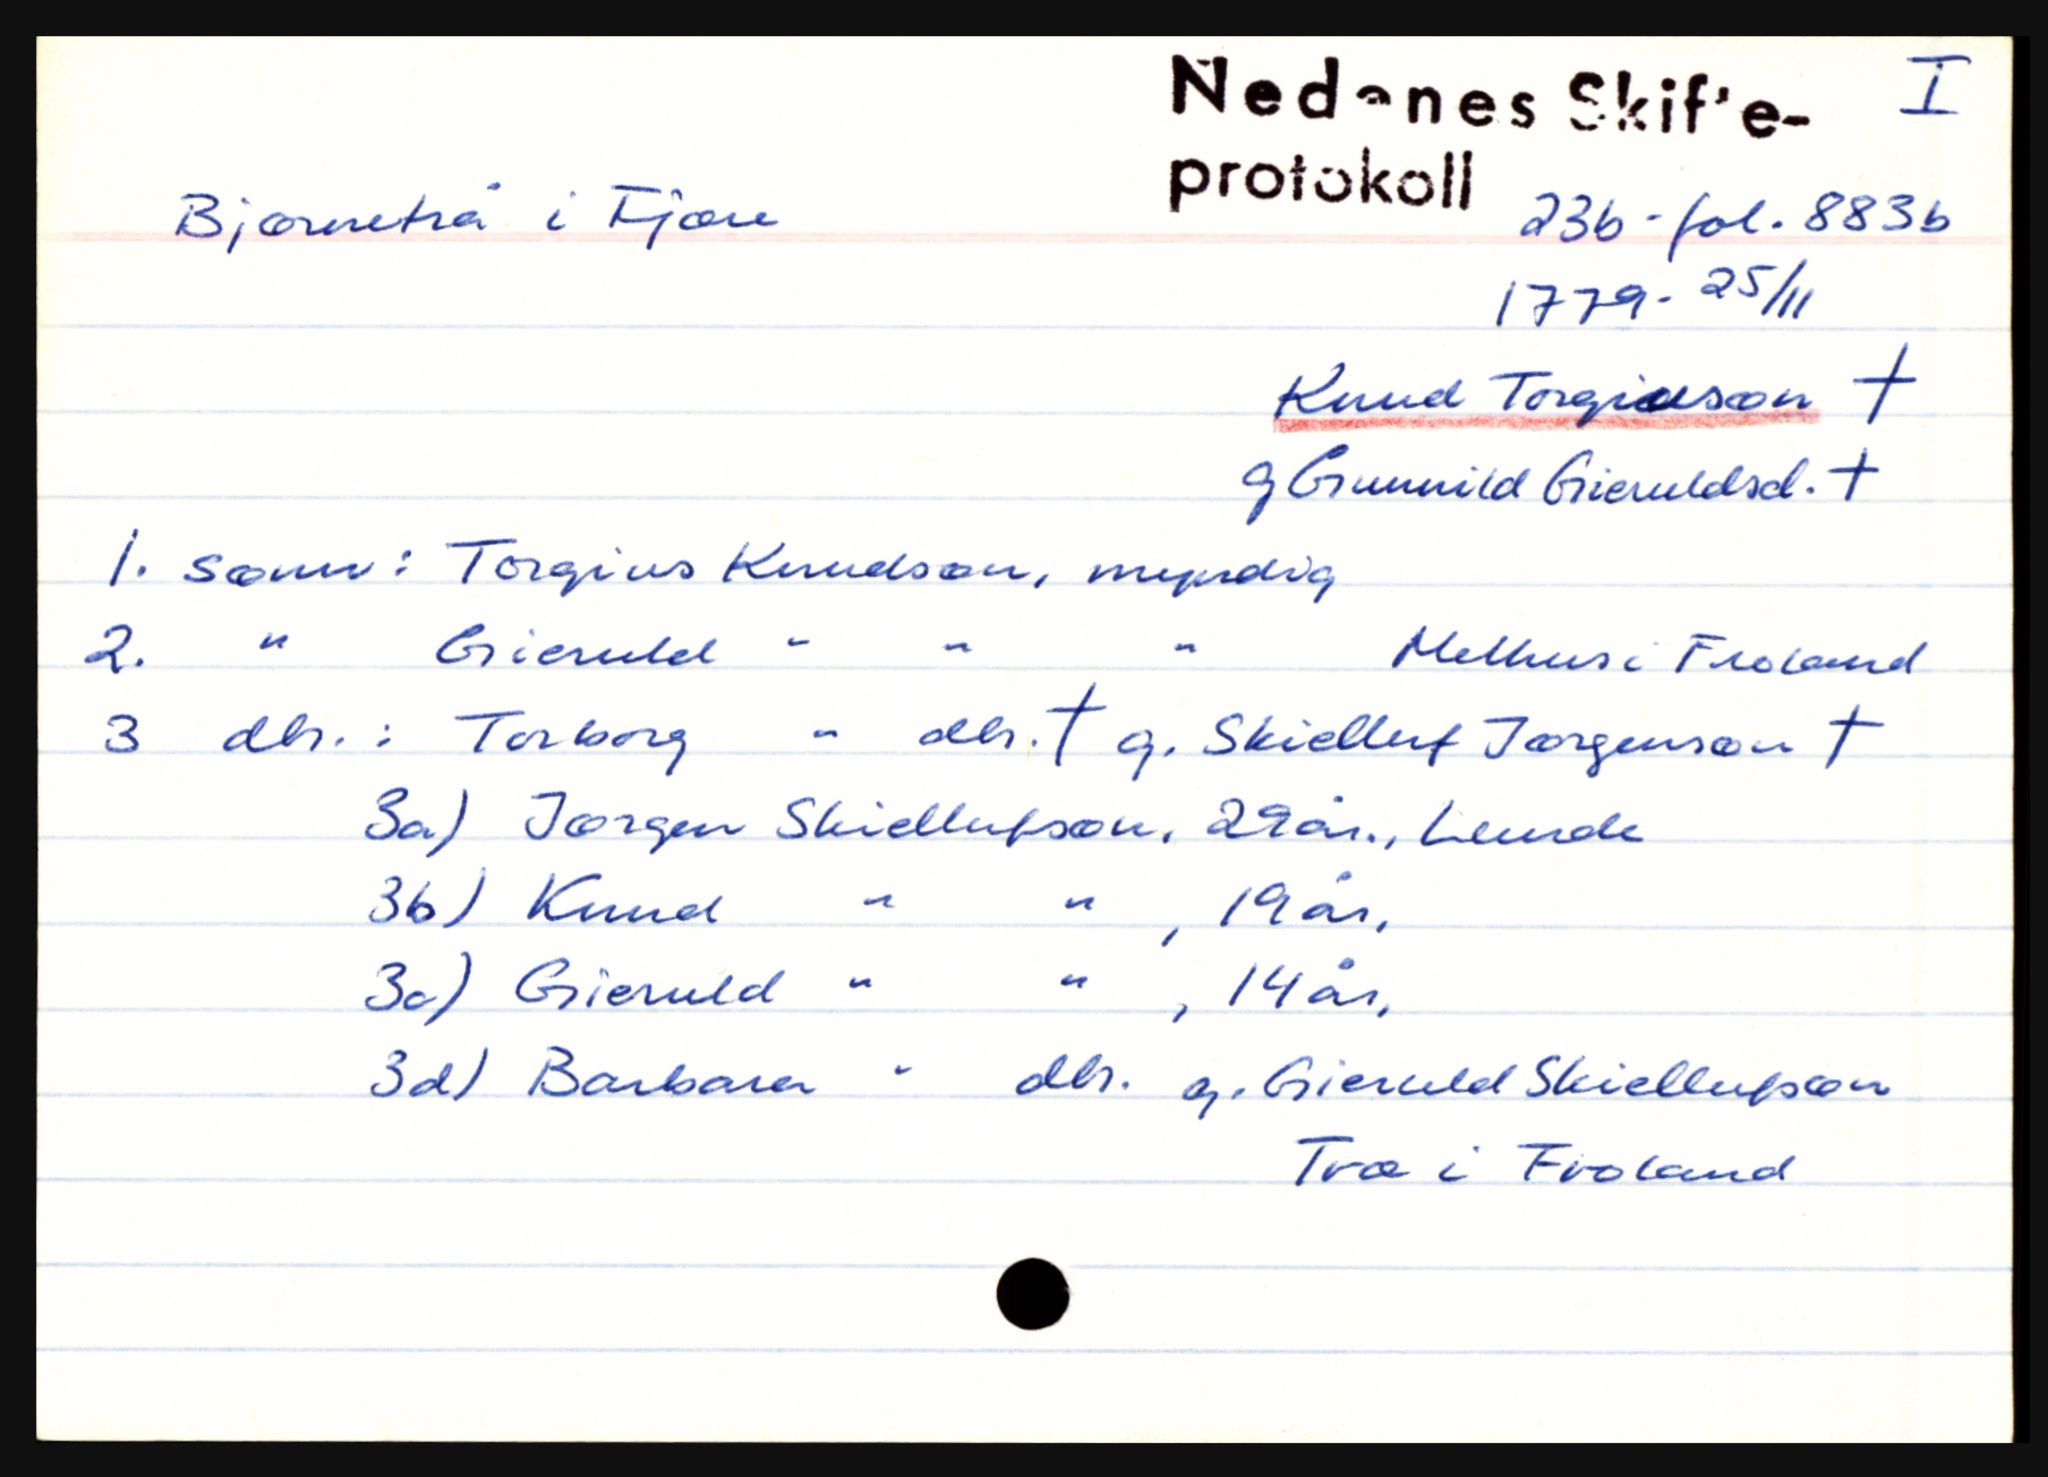 Nedenes Skifte- I
protokoll
Bjørnetrå i Fjære 23b - fol. 883b
1779 - 25/11
Knud Torgiuson †
g Gunnild Gieruldsd. †
1. sønn: Torgius Knudsøn, myndig
2. " Gieruld " " " Melhus i Froland
3 dtr. : Torborg " dtr. † g. Skielluf Jørgensøn †
3a) Jørgen Skiellufsøn, 29 år., Lunde
3b) Knud " " , 19 år,
3c) Gieruld " " , 14 år,
3d) Barbara " dtr. g. Gieruld Skiellufsøn
Træ i Froland